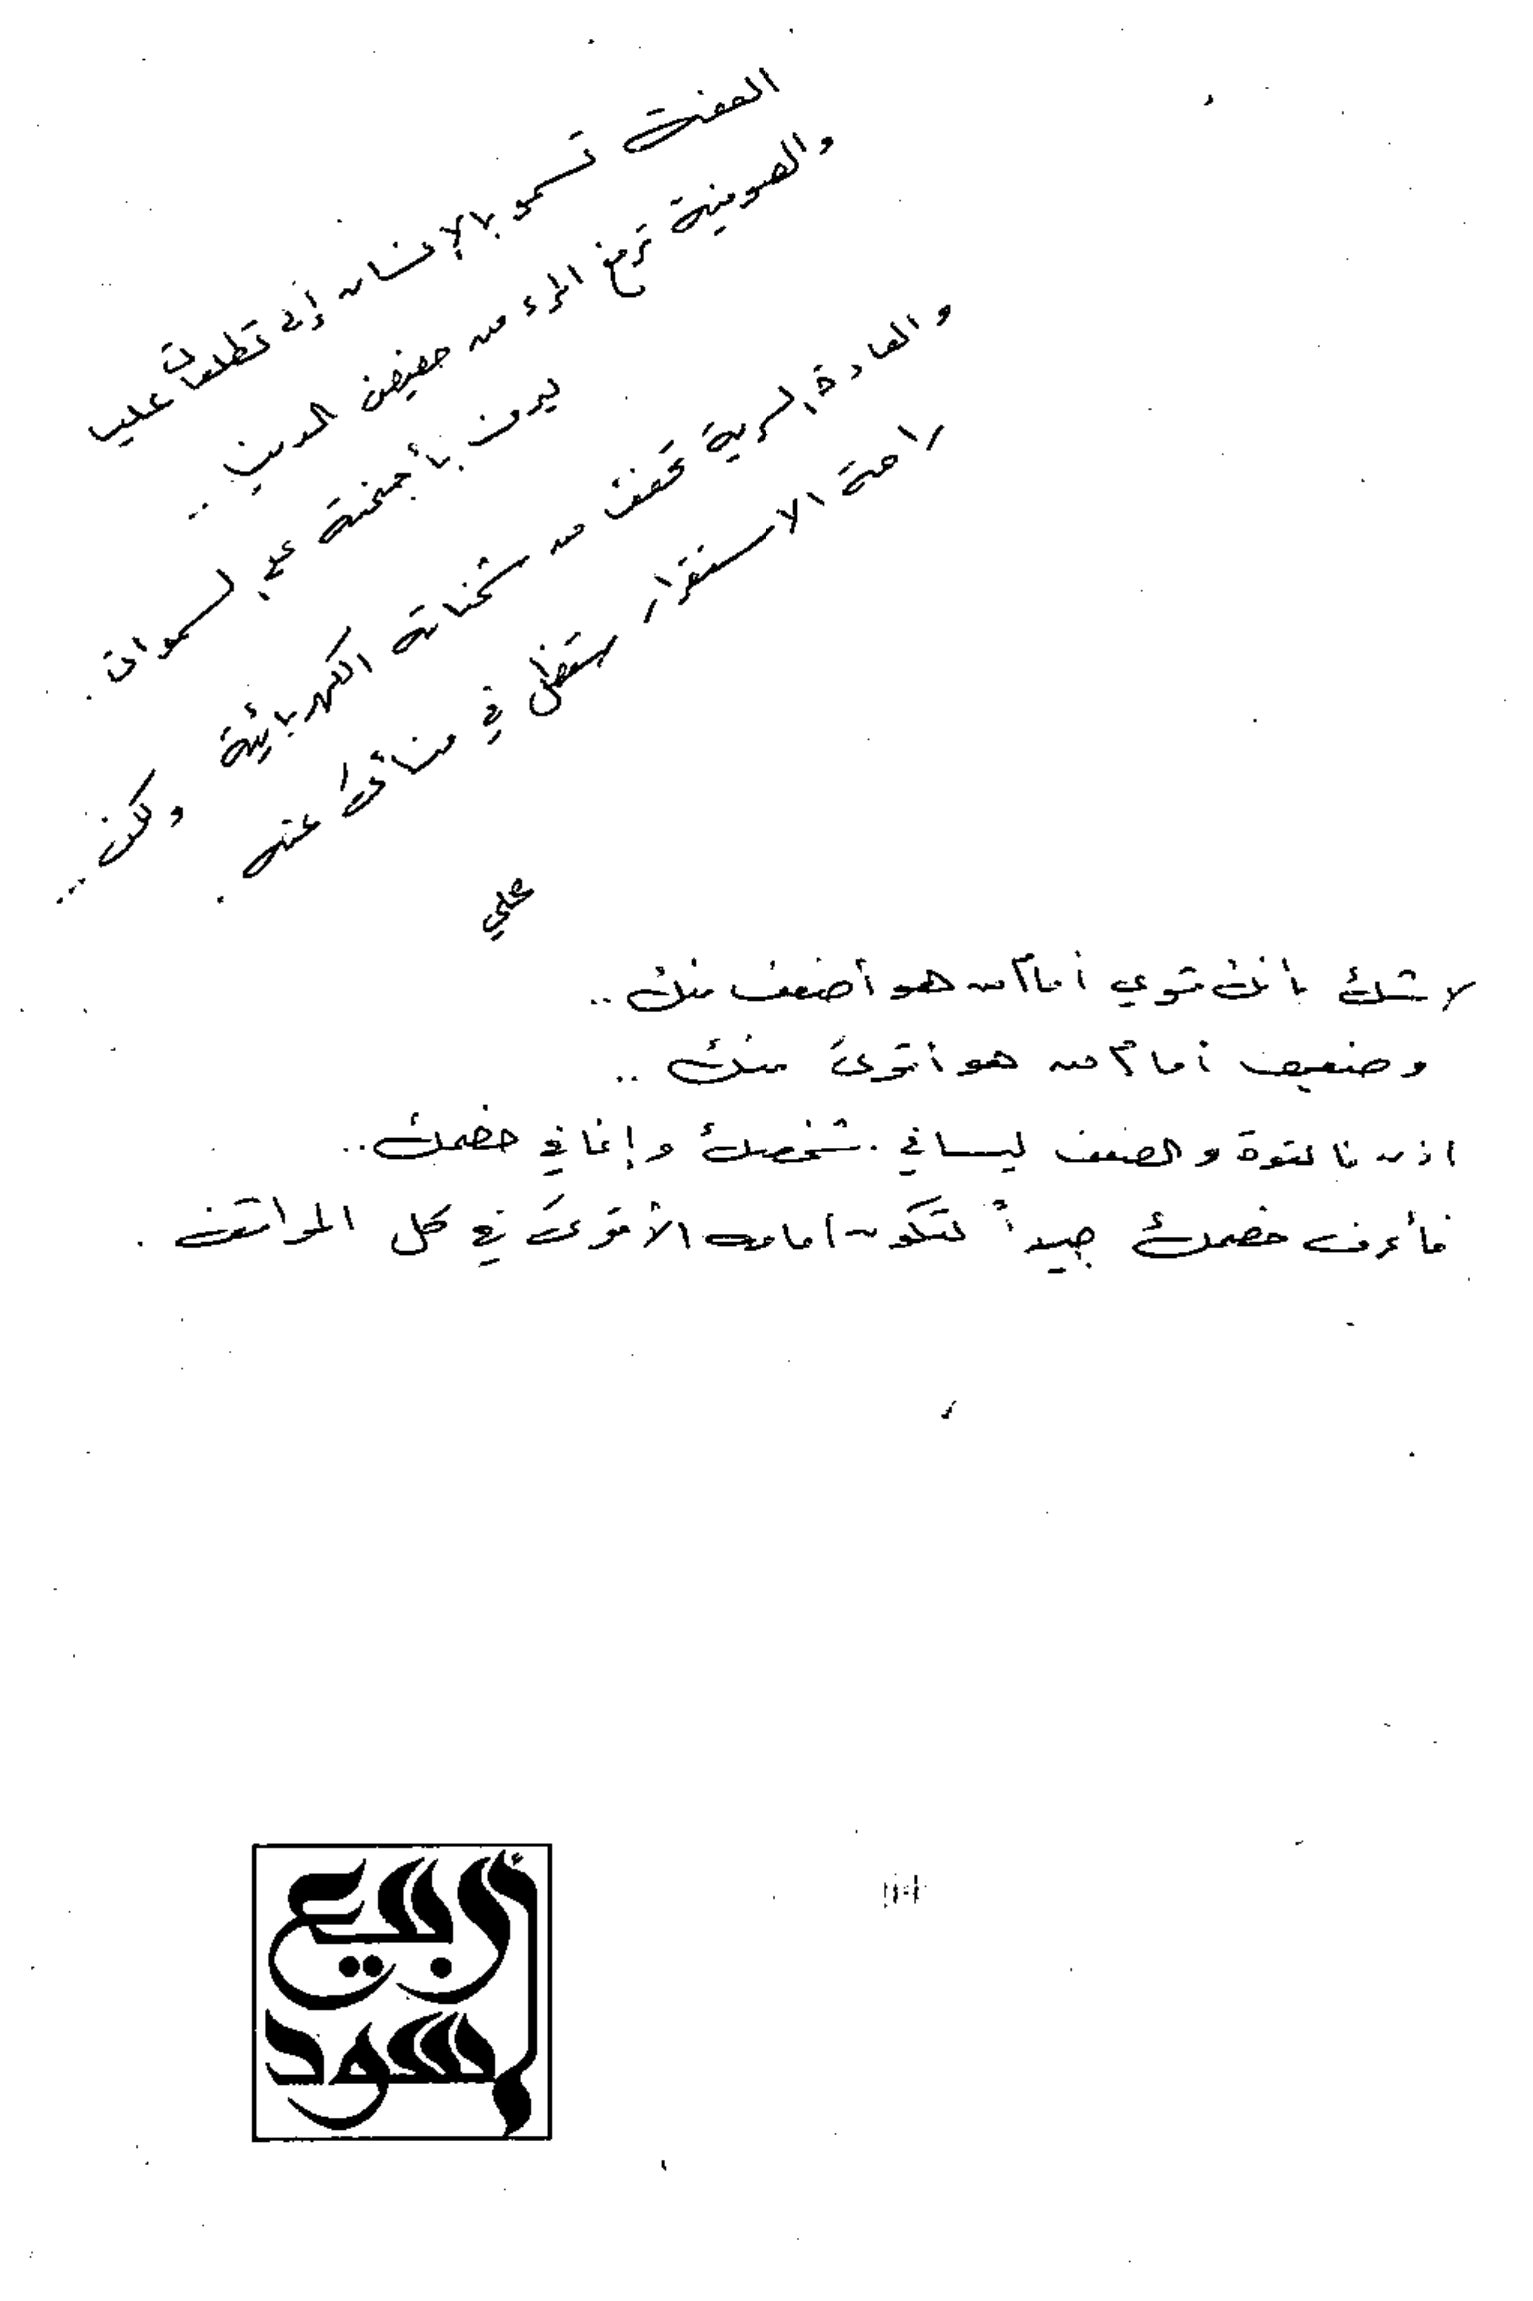 العفة تسمو بالإنسان إلى تطلعات عليا
والصوفية ترفع المرء من حضيض الدون ..
ليرف بأجنحة على السموات .
والعادة السرية تخفف من شحناته الكهربائية ولكن ...
راحة الاستقرار ستظل في منأىً عنه .
علي
لا شك بأنك قوي أمام من هو أضعف منك ..
وضعيف أمام من هو أقوى منك ..
اذن فالقوة والضعف ليسا في شخصك وإنما في خصمك ..
فأعرف خصمك جيداً لتكون أمامه الأقوى في كل المواقف .